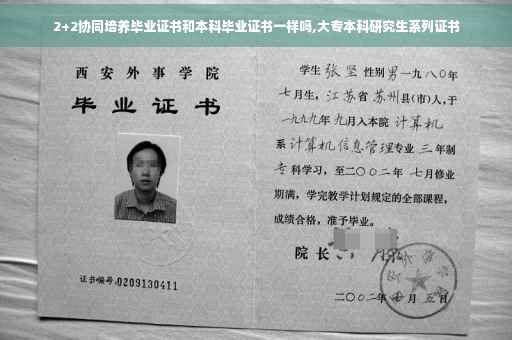 2+2协同培养毕业证书和本科毕业证书一样吗,大专本科研究生系列证书
西安外事学院
毕业证书
证书编号:0209130411
学生 张坚 性别 男 一九八〇年
七月生, 江苏省 苏州 县(市)人,于
一九九九年 九月入本院 计算机
系 计算机信息管理 专业 三 年制
专 科学习, 至二〇〇二年 七月修业
期满, 学完教学计划规定的全部课程,
成绩合格, 准予毕业。
院长
二〇〇二年 月 五日